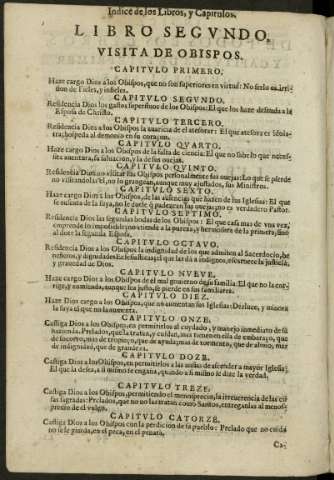 Indice de los Libros, y Capitulos.
LIBRO SEGVNDO,
VISITA DE OBISPOS.
CAPITVLO PRIMERO.
Haze cargo Dios a los Obispos, que no son superiores en virtud: No serlo es
sion de Fieles, y infieles.
CAPITVLO SEGVNDO.
Residencia Dios los gastos superfluos de los Obispos: El que los haze desnuda a la
Esposa de Christo.
CAPITVLO TERCERO.
Residencia Dios a los Obispos la auaricia de el atesorar: El que atesora es
tra, hospeda al demonio en su coraçon.
CAPITVLO QVARTO.
Haze cargo Dios a los Obispos de la falta de ciencia: El que no sabe lo que
sita auentura, su saluacion, y la de sus ouejas.
CAPITVLO QVINTO.
Residencia Dios no visitar los Obispos personalmente sus ouejas: Lo que se pierde
no visitandolas èl, no lo grangean, aunque muy ajustados, sus Ministros.
CAPITVLO SEXTO.
Haze cargo Dios a los Obispos, de las ausencias que hazen de las Iglesias: El que se
ausenta de la suya, no le darle a padezcan sus ouejas, no es verdadero Pastor.
CAPITVLO SEPTIMO.
Residencia Dios las segundas bodas de los Obispos: El que casa mas de vna vez,
emprende lo imposible, no atiende a la pureza, y
al dote la segunda Esposa.
CAPITVLO OCTAVO.
Residencia Dios a los Obispos la indignidad de los que admiten al Sacerdocio, be-
neficios, y dignidades Eclesiasticas: el que las dà a indignos, escurece la justicia,
y grauedad de Dios.
CAPITVLO NVEVE.
Haze cargo Dios a los Obispos de el mal gouierno de su familia: El que no la cor-
rige, y
CAPITVLO DIEZ.
Haze Dios cargo a los Obispos, que no aumentan sus Iglesias:
la suya el que no la aumenta.
CAPITVLO ONZE.
Castiga Dios a los Obispos, en permitirlos el cuydado, y manejo inmediato de su
hazienda: Prelados, que la tratan, y cuidan, mas tienen en ella de embaraço, que
de socorro, mas de tropieço, que de ayuda; mas de tormenta, que de aliuio, mas
de indignidad, que de grandeza.
CAPITVLO DOZE.
Castiga Dios a los Obispos, en permitirles a las ansias de ascender a mayor Iglesia;
El que la desea, a si mismo se engaña, quando a si mismo se dize la verdad.
CAPITVLO TREZE.
Castiga Dios a los Obispos, permitiendo el menosprecio, la irreuerencia de las co-
sas sagradas: Prelados, que no las tratan como Santos, entreganlas al menos-
precio de el vulgo.
CAPITVLO CATORZE.
Castiga Dios a los Obispos con la perdicion de su pueblo: Prelado que no cuida
no se le pierda, en el peca, en el penarà.
Ca-